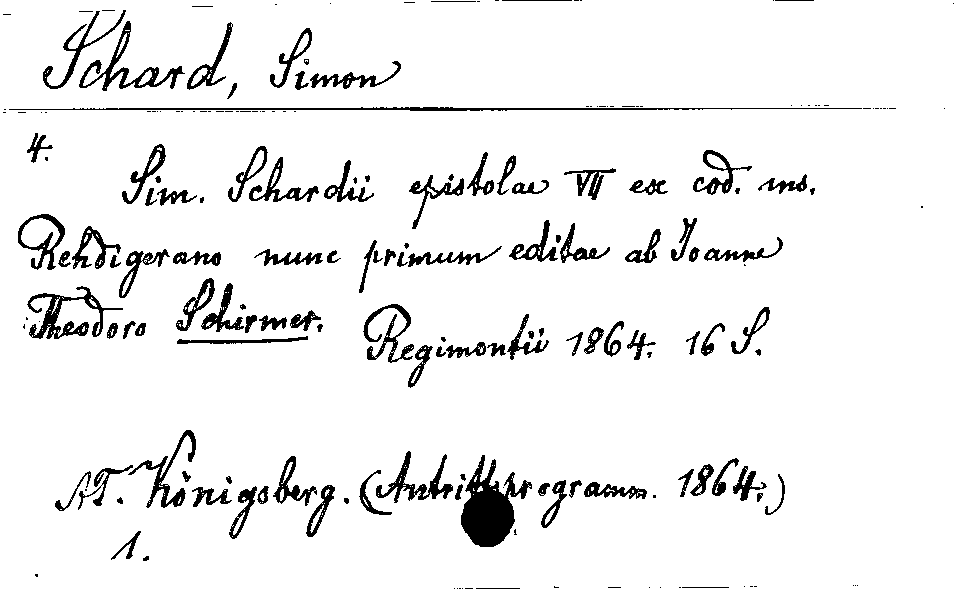 Schard, Simon
4.
Sim. Schardii epistolae VII ex cod. ms.
Rehdigerano nunc primum editae ab Joanne
Theodoro Schirmer.
Regimontii 1864. 16 S.
AT. Königsberg. (Antrittsprogramm. 1864.)
1.